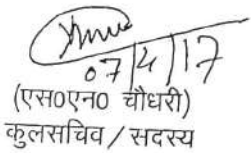 07/4/17
(एस०एन० चौधरी)
कुलसचिव / सदस्य